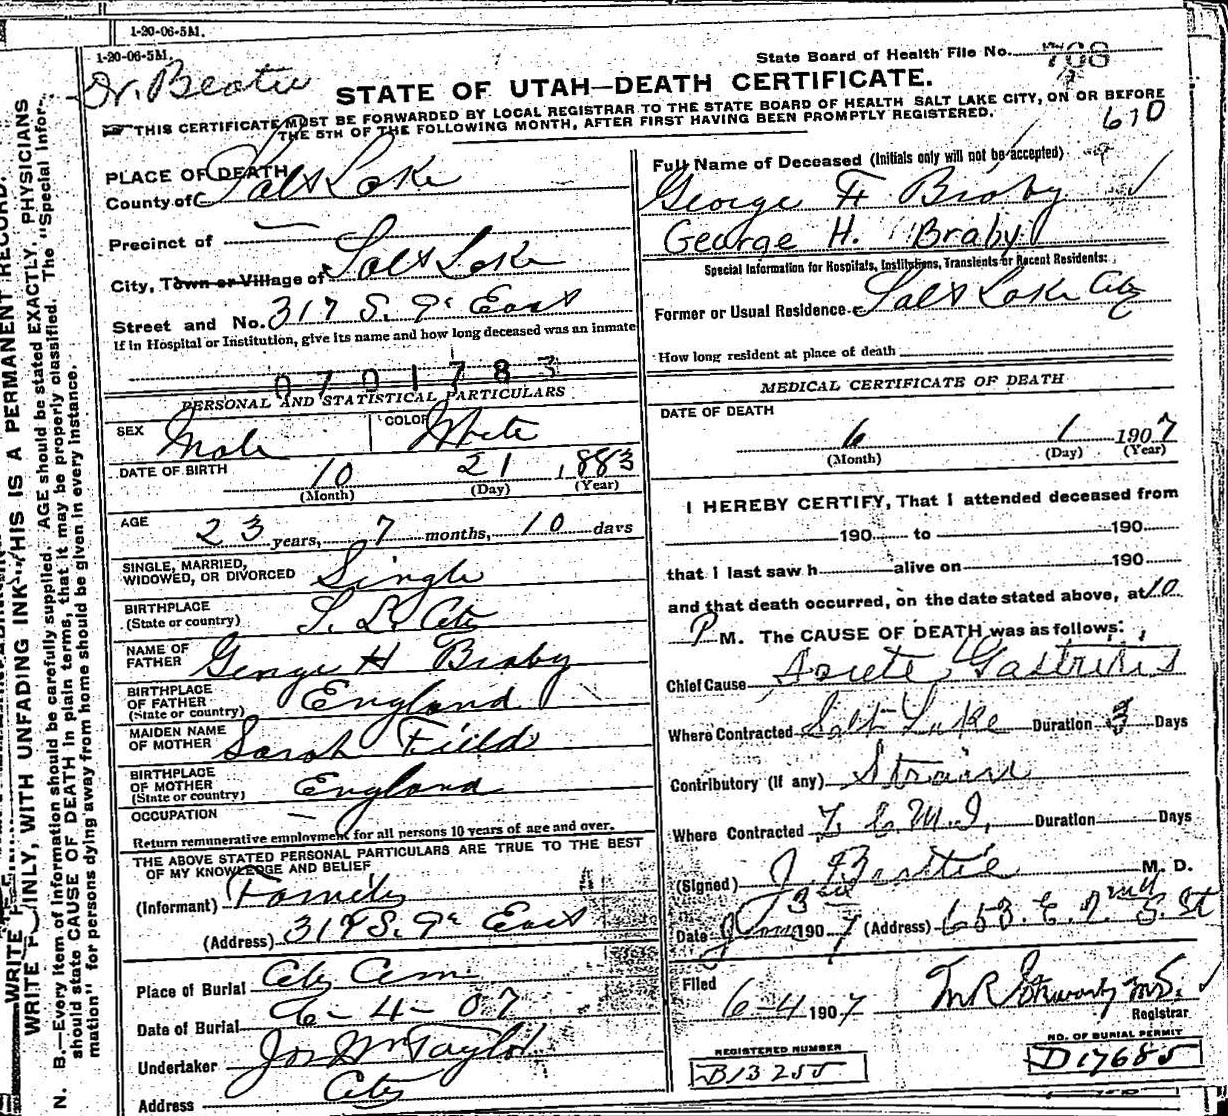 1-20-06-5M.
1-20-06-5M.
State Board of Health File No. 768
Dr. Beatie
STATE OF UTAH—DEATH CERTIFICATE.
THIS CERTIFICATE MUST BE FORWARDED BY LOCAL REGISTRAR TO THE STATE BOARD OF HEALTH SALT LAKE CITY, ON OR BEFORE
THE 5TH OF THE FOLLOWING MONTH, AFTER FIRST HAVING BEEN PROMPTLY REGISTERED.
610
PLACE OF DEATH
County of Salt Lake
Precinct of
City, Town or Village of Salt Lake
Street and No. 317 S. 9th East
If in Hospital or Institution, give its name and how long deceased was an inmate
0701783
PERSONAL AND STATISTICAL PARTICULARS
SEX Male COLOR White
DATE OF BIRTH 10 21 1883
(Month) (Day) (Year)
AGE 23 years, 7 months, 10 days
SINGLE, MARRIED,
WIDOWED, OR DIVORCED Single
BIRTHPLACE
(State or country) S. L. City
NAME OF
FATHER George H Braby
BIRTHPLACE
OF FATHER
(State or country) England
MAIDEN NAME
OF MOTHER Sarah Field
BIRTHPLACE
OF MOTHER
(State or country) England
OCCUPATION —
Return remunerative employment for all persons 10 years of age and over.
THE ABOVE STATED PERSONAL PARTICULARS ARE TRUE TO THE BEST
OF MY KNOWLEDGE AND BELIEF
(Informant) Family
(Address) 317 S. 9th East
Place of Burial City Cem
Date of Burial 6-4-07
Undertaker Jos Wm Taylor
Address City
Full Name of Deceased (Initials only will not be accepted)
George H Braby
George H. Braby
Special Information for Hospitals, Institutions, Transients or Recent Residents:
Former or Usual Residence Salt Lake City
How long resident at place of death
MEDICAL CERTIFICATE OF DEATH
DATE OF DEATH
6 1 1907
(Month) (Day) (Year)
I HEREBY CERTIFY, That I attended deceased from
190 to 190
that I last saw h alive on 190
and that death occurred, on the date stated above, at 10
P M. The CAUSE OF DEATH was as follows:
Chief Cause Acute Gastritis
Where Contracted Salt Lake Duration 3 Days
Contributory (If any) Strain
Where Contracted Z C M I, Duration Days
(Signed) J. Beatie M. D.
Date June 3rd 1907 (Address) 653. E. 2nd S. St
Filed
6-4 1907
Registrar
REGISTERED NUMBER
B13255
NO. OF BURIAL PERMIT
D17685
WRITE PLAINLY, WITH UNFADING INK—THIS IS A PERMANENT RECORD.
N. B.—Every item of information should be carefully supplied. AGE should be stated EXACTLY. PHYSICIANS
should state CAUSE OF DEATH in plain terms, that it may be properly classified. The "Special Infor-
mation" for persons dying away from home should be given in every instance.